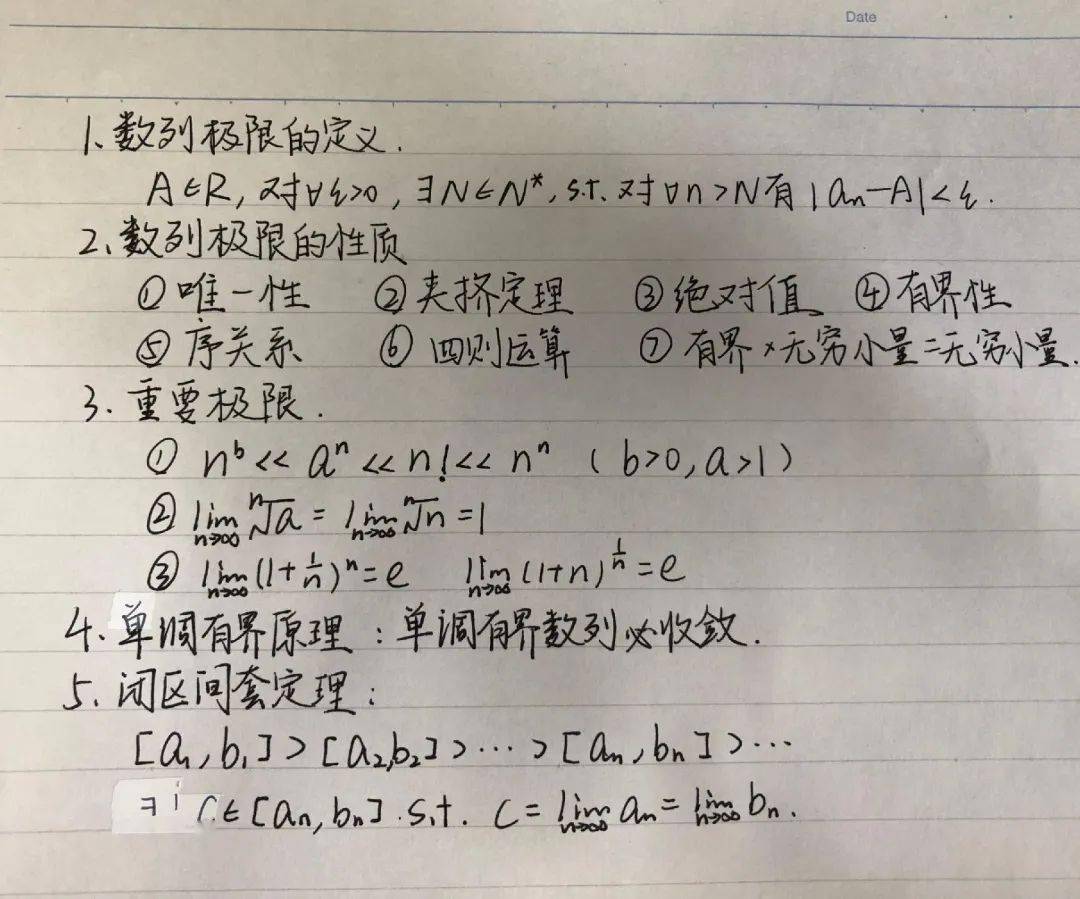 Date
1、数列极限的定义.
A∈R, 对∀ε>0, ∃N∈N*, s.t. 对∀n>N有|aₙ-A|<ε.
2、数列极限的性质
① 唯一性 ② 夹挤定理 ③ 绝对值 ④ 有界性
⑤ 序关系 ⑥ 四则运算 ⑦ 有界×无穷小量=无穷小量.
3. 重要极限.
① nᵇ << aⁿ << n! << nⁿ (b>0, a>1)
② lim_{n→∞} ⁿ√a = lim_{n→∞} ⁿ√n = 1
③ lim_{n→∞} (1+1/n)ⁿ = e lim_{n→∞} (1+n)^{1/n} = e
4. 单调有界原理:单调有界数列必收敛.
5、闭区间套定理:
[a₁,b₁]>[a₂,b₂]>…>[aₙ,bₙ]>…
∃! C∈[aₙ,bₙ].s.t. C=lim_{n→∞} aₙ=lim_{n→∞} bₙ.